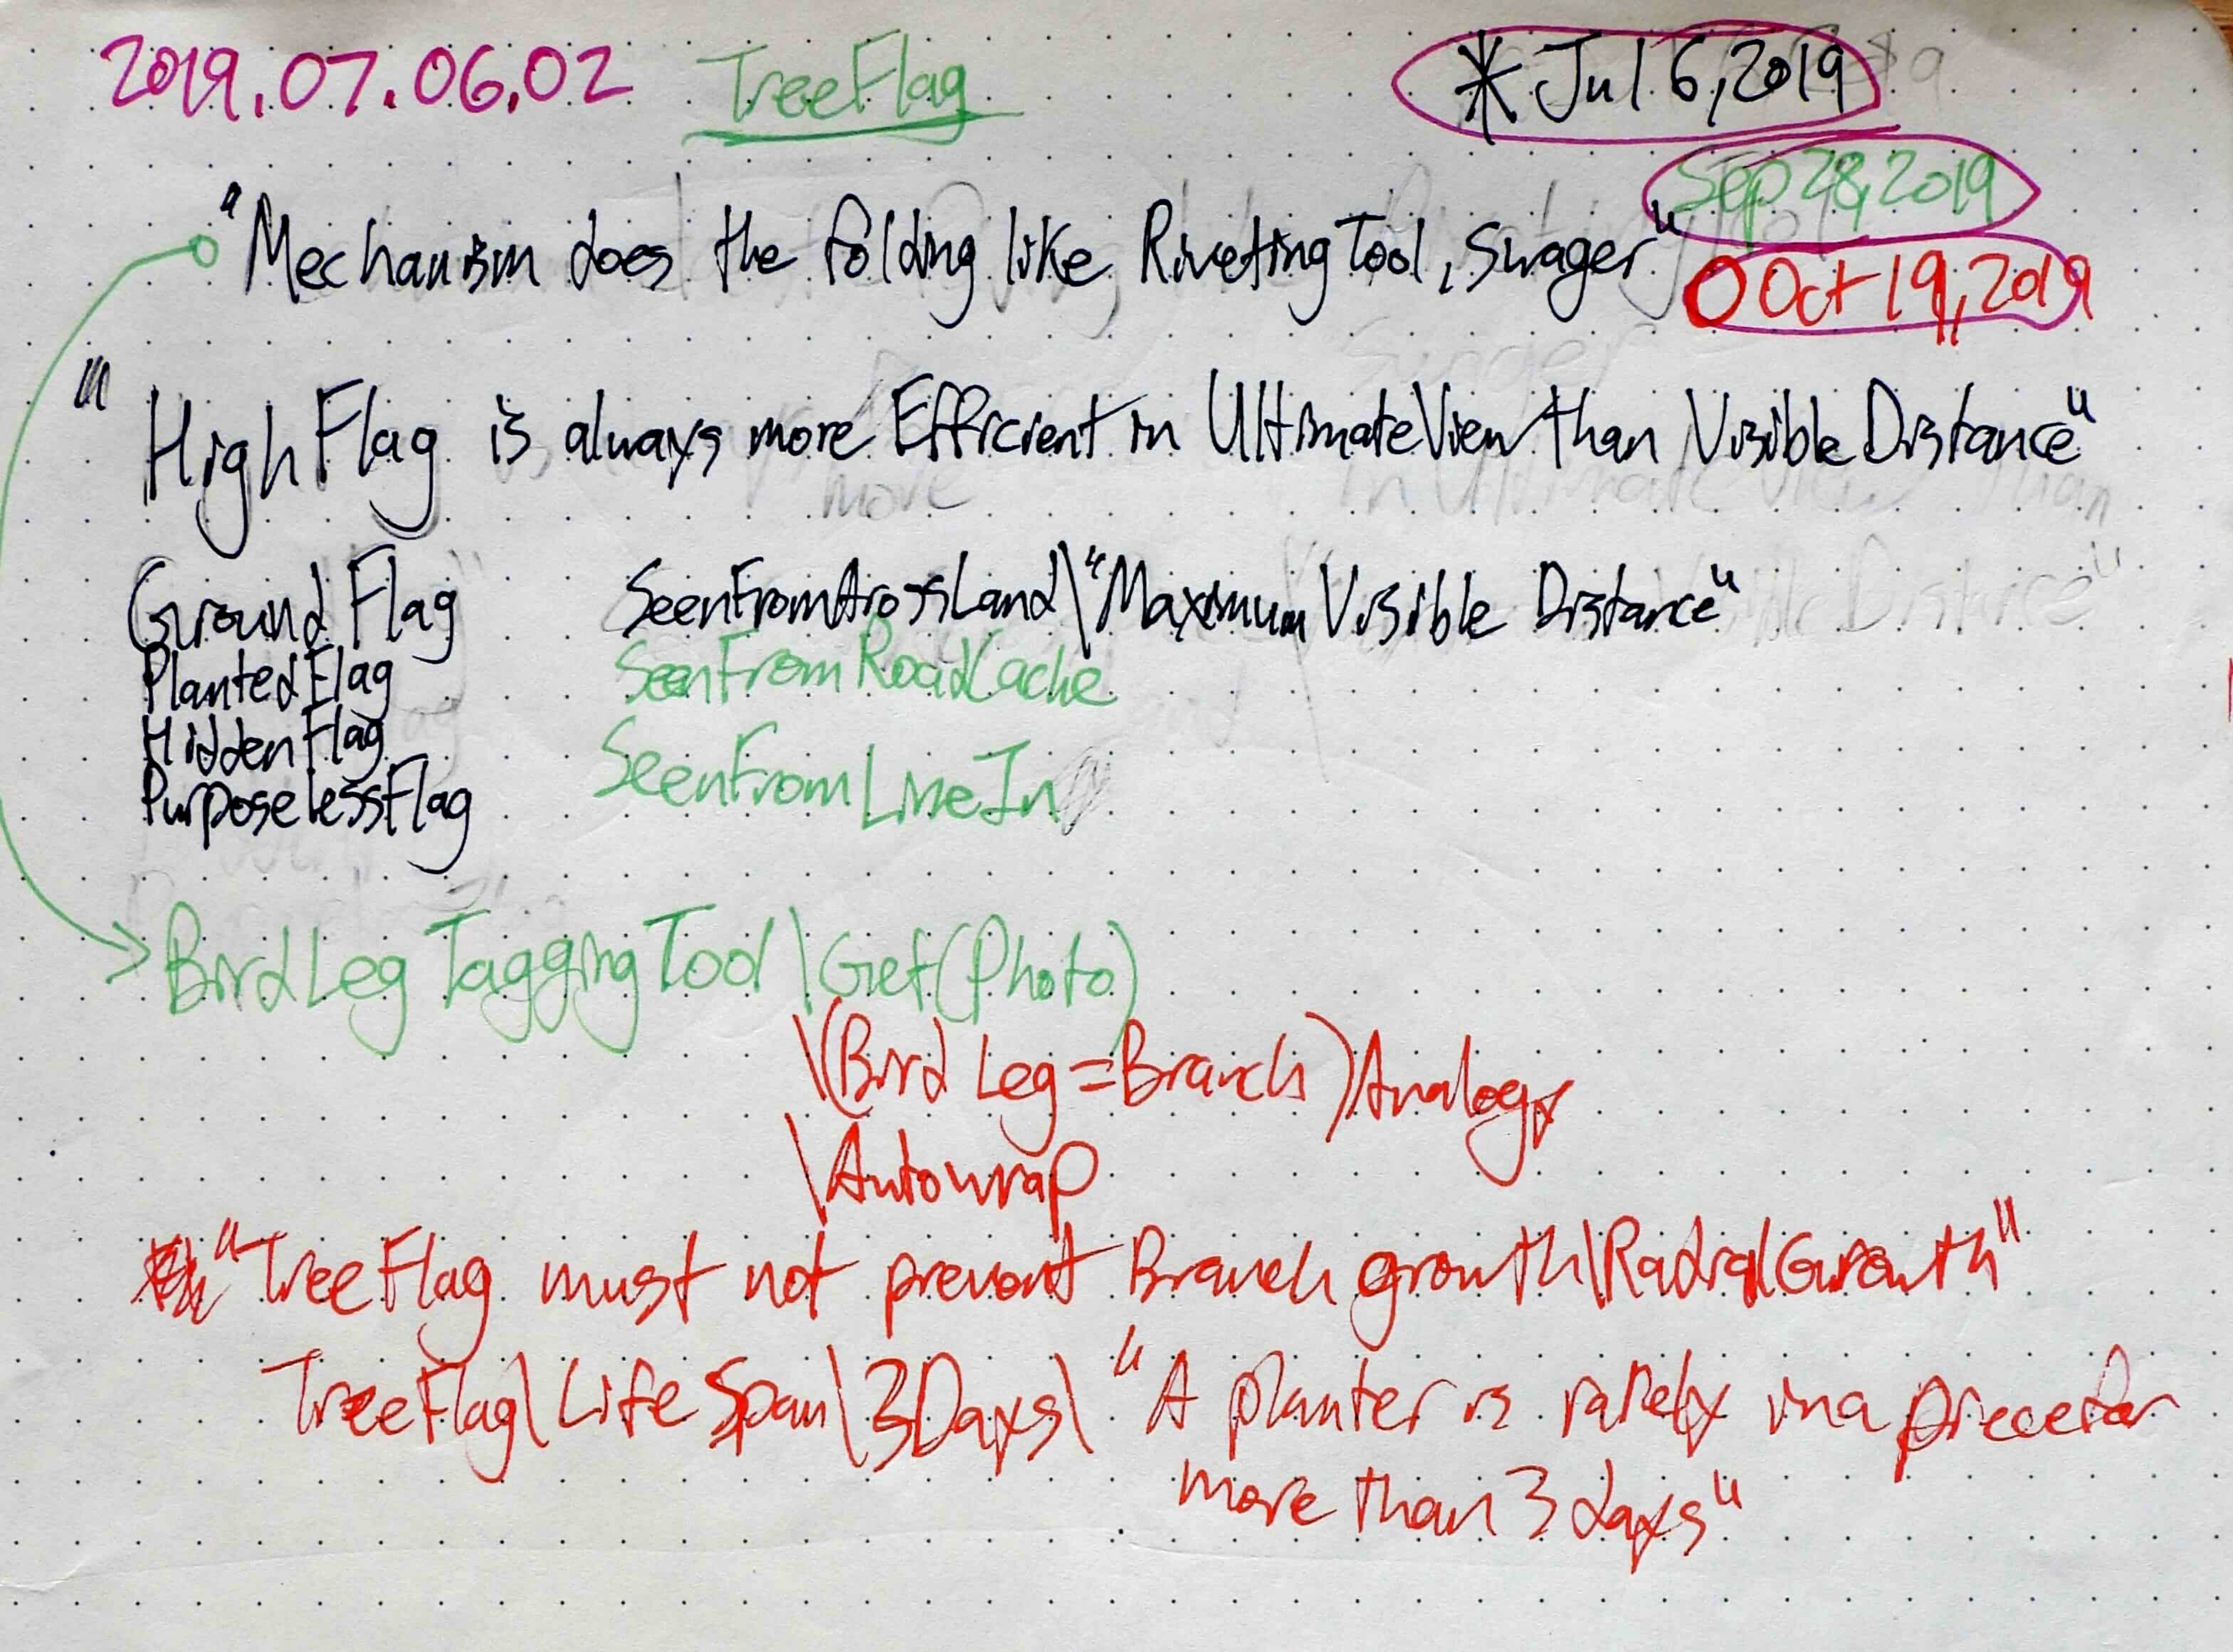 2019.07.06.02 TreeFlag * Jul 6, 2019
Sep 28, 2019
"Mechanism does the folding like RivetingTool, Swager"
O Oct 19, 2019
"HighFlag is always more Efficient in UltimateView than VisibleDistance"
GroundFlag SeenFromArossLand\"Maximum Visible Distance"
PlantedFlag SeenFromRoadCache
HiddenFlag
PurposelessFlag SeenFromLineIn
BirdLegTaggingTool\Get(Photo)
\(Bird Leg=Branch)Analogy
\Autowrap
"TreeFlag must not prevent Branch growth\RadialGrowth"
TreeFlag\LifeSpan\3Days\"A planter is rarely in a piece for
more than 3 days"